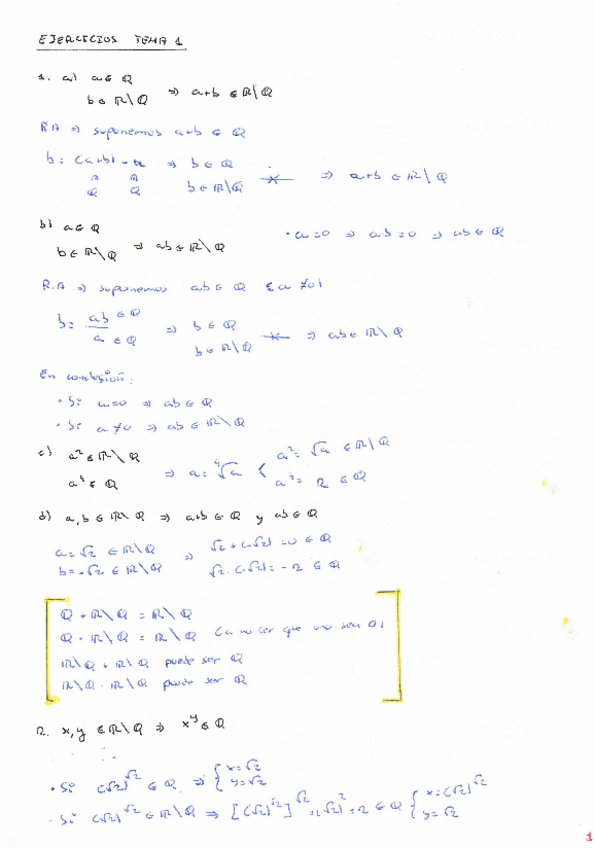 EJERCICIOS TEMA 1
1. a) a ∈ ℚ
b ∈ ℝ\ℚ ⇒ a+b ∈ ℝ\ℚ
RA ⇒ suponemos a+b ∈ ℚ
b = (a+b) - a ⇒ b ∈ ℚ
ℚ ℚ b ∈ ℝ\ℚ ⇒ a+b ∈ ℝ\ℚ
b) a ∈ ℚ
b ∈ ℝ\ℚ ⇒ ab ∈ ℝ\ℚ · a=0 ⇒ a·b=0 ⇒ ab ∈ ℚ
R.A ⇒ suponemos ab ∈ ℚ {a ≠ 0}
b = ab ∈ ℚ / a ∈ ℚ ⇒ b ∈ ℚ
b ∈ ℝ\ℚ ⇒ ab ∈ ℝ\ℚ
En conclusión:
· Si a=0 ⇒ ab ∈ ℚ
· Si a ≠ 0 ⇒ ab ∈ ℝ\ℚ
c) a² ∈ ℝ\ℚ
a⁴ ∈ ℚ ⇒ a = ⁴√2 < a² = √2 ∈ ℝ\ℚ
a⁴ = 2 ∈ ℚ
d) a, b ∈ ℝ\ℚ ⇒ a+b ∈ ℚ y ab ∈ ℚ
a = √2 ∈ ℝ\ℚ ⇒ √2 + (-√2) = 0 ∈ ℚ
b = -√2 ∈ ℝ\ℚ √2 · (-√2) = -2 ∈ ℚ
ℚ + ℝ\ℚ = ℝ\ℚ
ℚ · ℝ\ℚ = ℝ\ℚ (a no ser que uno sea 0)
ℝ\ℚ + ℝ\ℚ puede ser ℚ
ℝ\ℚ · ℝ\ℚ puede ser ℚ
2. x, y ∈ ℝ\ℚ ⇒ x^y ∈ ℚ
· Si (√2)^√2 ∈ ℚ ⇒ { x = √2
y = √2
· Si (√2)^√2 ∈ ℝ\ℚ ⇒ [(√2)^√2]^√2 = (√2)² = 2 ∈ ℚ { x = (√2)^√2
y = √2
1